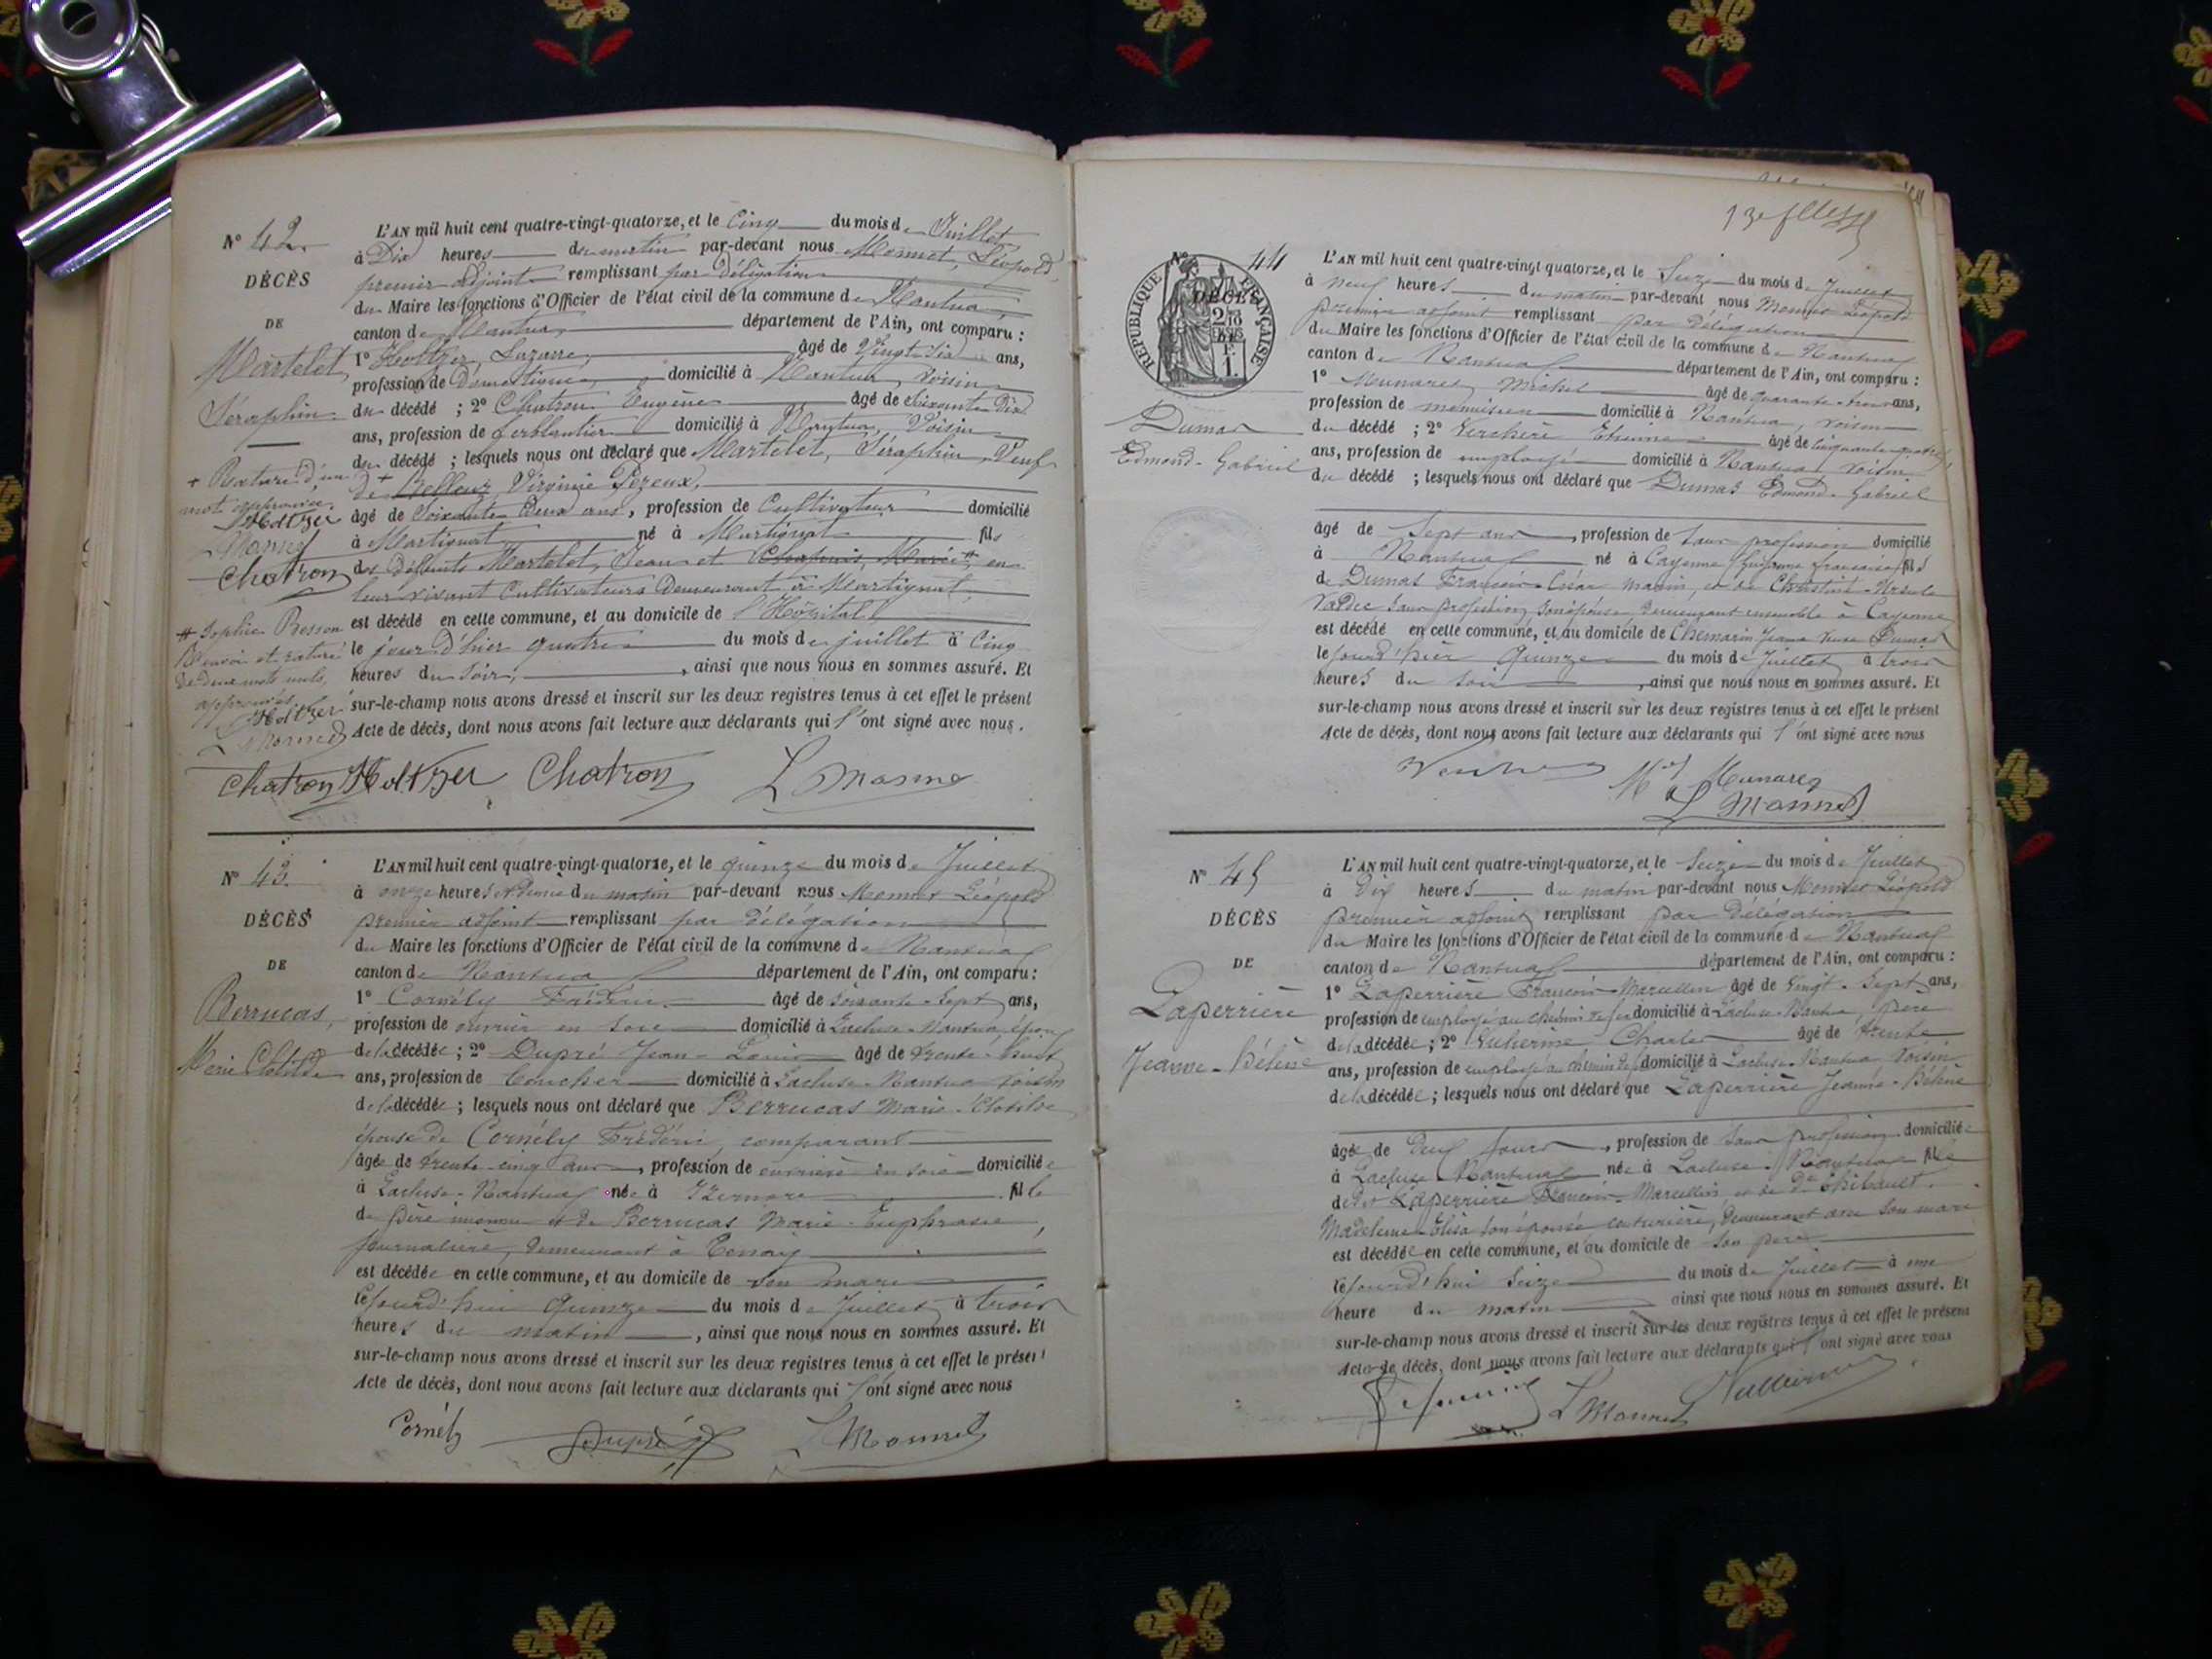 N° 42.
DÉCÈS
DE
Martelet,
Séraphin
L'AN mil huit cent quatre-vingt-quatorze, et le Cinq du mois de Juillet
à Dix heures du matin par-devant nous Monnet, Léopold,
premier adjoint remplissant par délégation
du Maire les fonctions d'Officier de l'état civil de la commune de Nantua
canton de Nantua, département de l'Ain, ont comparu :
1° Holtzer, Lazare, âgé de Vingt-six ans,
profession de Domestique, domicilié à Nantua, voisin
du décédé ; 2° Chatron Eugène âgé de soixante Dix
ans, profession de ferblantier domicilié à Nantua, Voisin
du décédé ; lesquels nous ont déclaré que Martelet, Séraphin, Veuf
de + Virginie Pezeux,
âgé de Soixante Deux ans, profession de Cultivateur domicilié
à Martignat né à Martignat fils
des défunts Martelet, Jean et Marie # en
leur vivant Cultivateurs Demeurant à Martignat,
est décédé en cette commune, et au domicile de l'Hôpital
le jour d'hier quatre du mois de juillet à Cinq
heures du Soir, ainsi que nous nous en sommes assuré. Et
sur-le-champ nous avons dressé et inscrit sur les deux registres tenus à cet effet le présent
Acte de décès, dont nous avons fait lecture aux déclarants qui l'ont signé avec nous.
+ Rature d'un
mot approuvée.
Holtzer
LMonnet
Chatron
# Sophie Besson
Renvoi et rature
de deux mots nuls,
approuvés
Holtzer
LMonnet
Chatron Holtzer Chatron LMonnet
N° 43.
DÉCÈS
DE
Berrucas,
Marie Clotilde
L'AN mil huit cent quatre-vingt-quatorze, et le quinze du mois de Juillet
à onze heures et demie du matin par-devant nous Monnet Léopold
premier adjoint remplissant par délégation
du Maire les fonctions d'Officier de l'état civil de la commune de Nantua
canton de Nantua département de l'Ain, ont comparu :
1° Cornély Frédéric âgé de soixante-sept ans,
profession de ouvrier en soie domicilié à Lacluse-Nantua, époux
de la décédée ; 2° Dupré Jean-Louis âgé de trente-huit
ans, profession de boucher domicilié à Lacluse-Nantua voisin
de la décédée ; lesquels nous ont déclaré que Berrucas Marie-Clotilde
épouse de Cornély Frédéric, comparant
âgée de trente-cinq ans, profession de ouvrière en soie domiciliée
à Lacluse-Nantua née à Izernore fille
de père inconnu et de Berrucas Marie-Euphrasie,
journalière, demeurant à Tenay
est décédée en cette commune, et au domicile de son mari
cejourd'hui quinze du mois de Juillet à trois
heures du matin, ainsi que nous nous en sommes assuré. Et
sur-le-champ nous avons dressé et inscrit sur les deux registres tenus à cet effet le présent
Acte de décès, dont nous avons fait lecture aux déclarants qui l'ont signé avec nous
Cornély Dupré LMonnet
N° 44
DÉCÈS
RÉPUBLIQUE FRANÇAISE
Dumas
Edmond-Gabriel
L'AN mil huit cent quatre-vingt quatorze, et le Seize du mois de Juillet
à neuf heures du matin par-devant nous Monnet Léopold
premier adjoint remplissant par délégation
du Maire les fonctions d'Officier de l'état civil de la commune de Nantua
canton de Nantua département de l'Ain, ont comparu :
1° Munarez Michel âgé de quarante-trois ans,
profession de menuisier domicilié à Nantua, voisin
du décédé ; 2° Verchère Etienne âgé de cinquante-quatre
ans, profession de employé domicilié à Nantua voisin
du décédé ; lesquels nous ont déclaré que Dumas Edmond-Gabriel
âgé de Sept ans, profession de sans profession domicilié
à Nantua né à Cayenne (Guyanne française) fils
de Dumas François-César marin, et de Christine-Ursule
sans profession, son épouse, demeurant ensemble à Cayenne
est décédé en cette commune, et au domicile de Chemarin Jeanne veuve Dumas
le jour d'hier Quinze du mois de Juillet à trois
heures du soir, ainsi que nous nous en sommes assuré. Et
sur-le-champ nous avons dressé et inscrit sur les deux registres tenus à cet effet le présent
Acte de décès, dont nous avons fait lecture aux déclarants qui l'ont signé avec nous
Munarez
LMonnet
N° 45
DÉCÈS
DE
Laperrière
Jeanne-Hélène
L'AN mil huit cent quatre-vingt-quatorze, et le Seize du mois de Juillet
à Dix heures du matin par-devant nous Monnet Léopold
premier adjoint remplissant par délégation
du Maire les fonctions d'Officier de l'état civil de la commune de Nantua
canton de Nantua département de l'Ain, ont comparu :
1° Laperrière François-Marcellin âgé de vingt-sept ans,
profession de employé au chemin de fer domicilié à Lacluse-Nantua, père
de la décédée ; 2° Vulherme Charles âgé de trente
ans, profession de employé au chemin de fer domicilié à Lacluse-Nantua voisin
de la décédée ; lesquels nous ont déclaré que Laperrière Jeanne-Hélène
âgée de Deux jours, profession de sans profession domiciliée
à Lacluse-Nantua née à Lacluse-Nantua fille
de Laperrière François-Marcellin et de Thibault
Madeleine-Elisa son épouse couturière, demeurant avec son mari
est décédée en cette commune, et au domicile de son père
cejourd'hui Seize du mois de Juillet à une
heure du matin ainsi que nous nous en sommes assuré. Et
sur-le-champ nous avons dressé et inscrit sur les deux registres tenus à cet effet le présent
Acte de décès, dont nous avons fait lecture aux déclarants qui l'ont signé avec nous
LMonnet